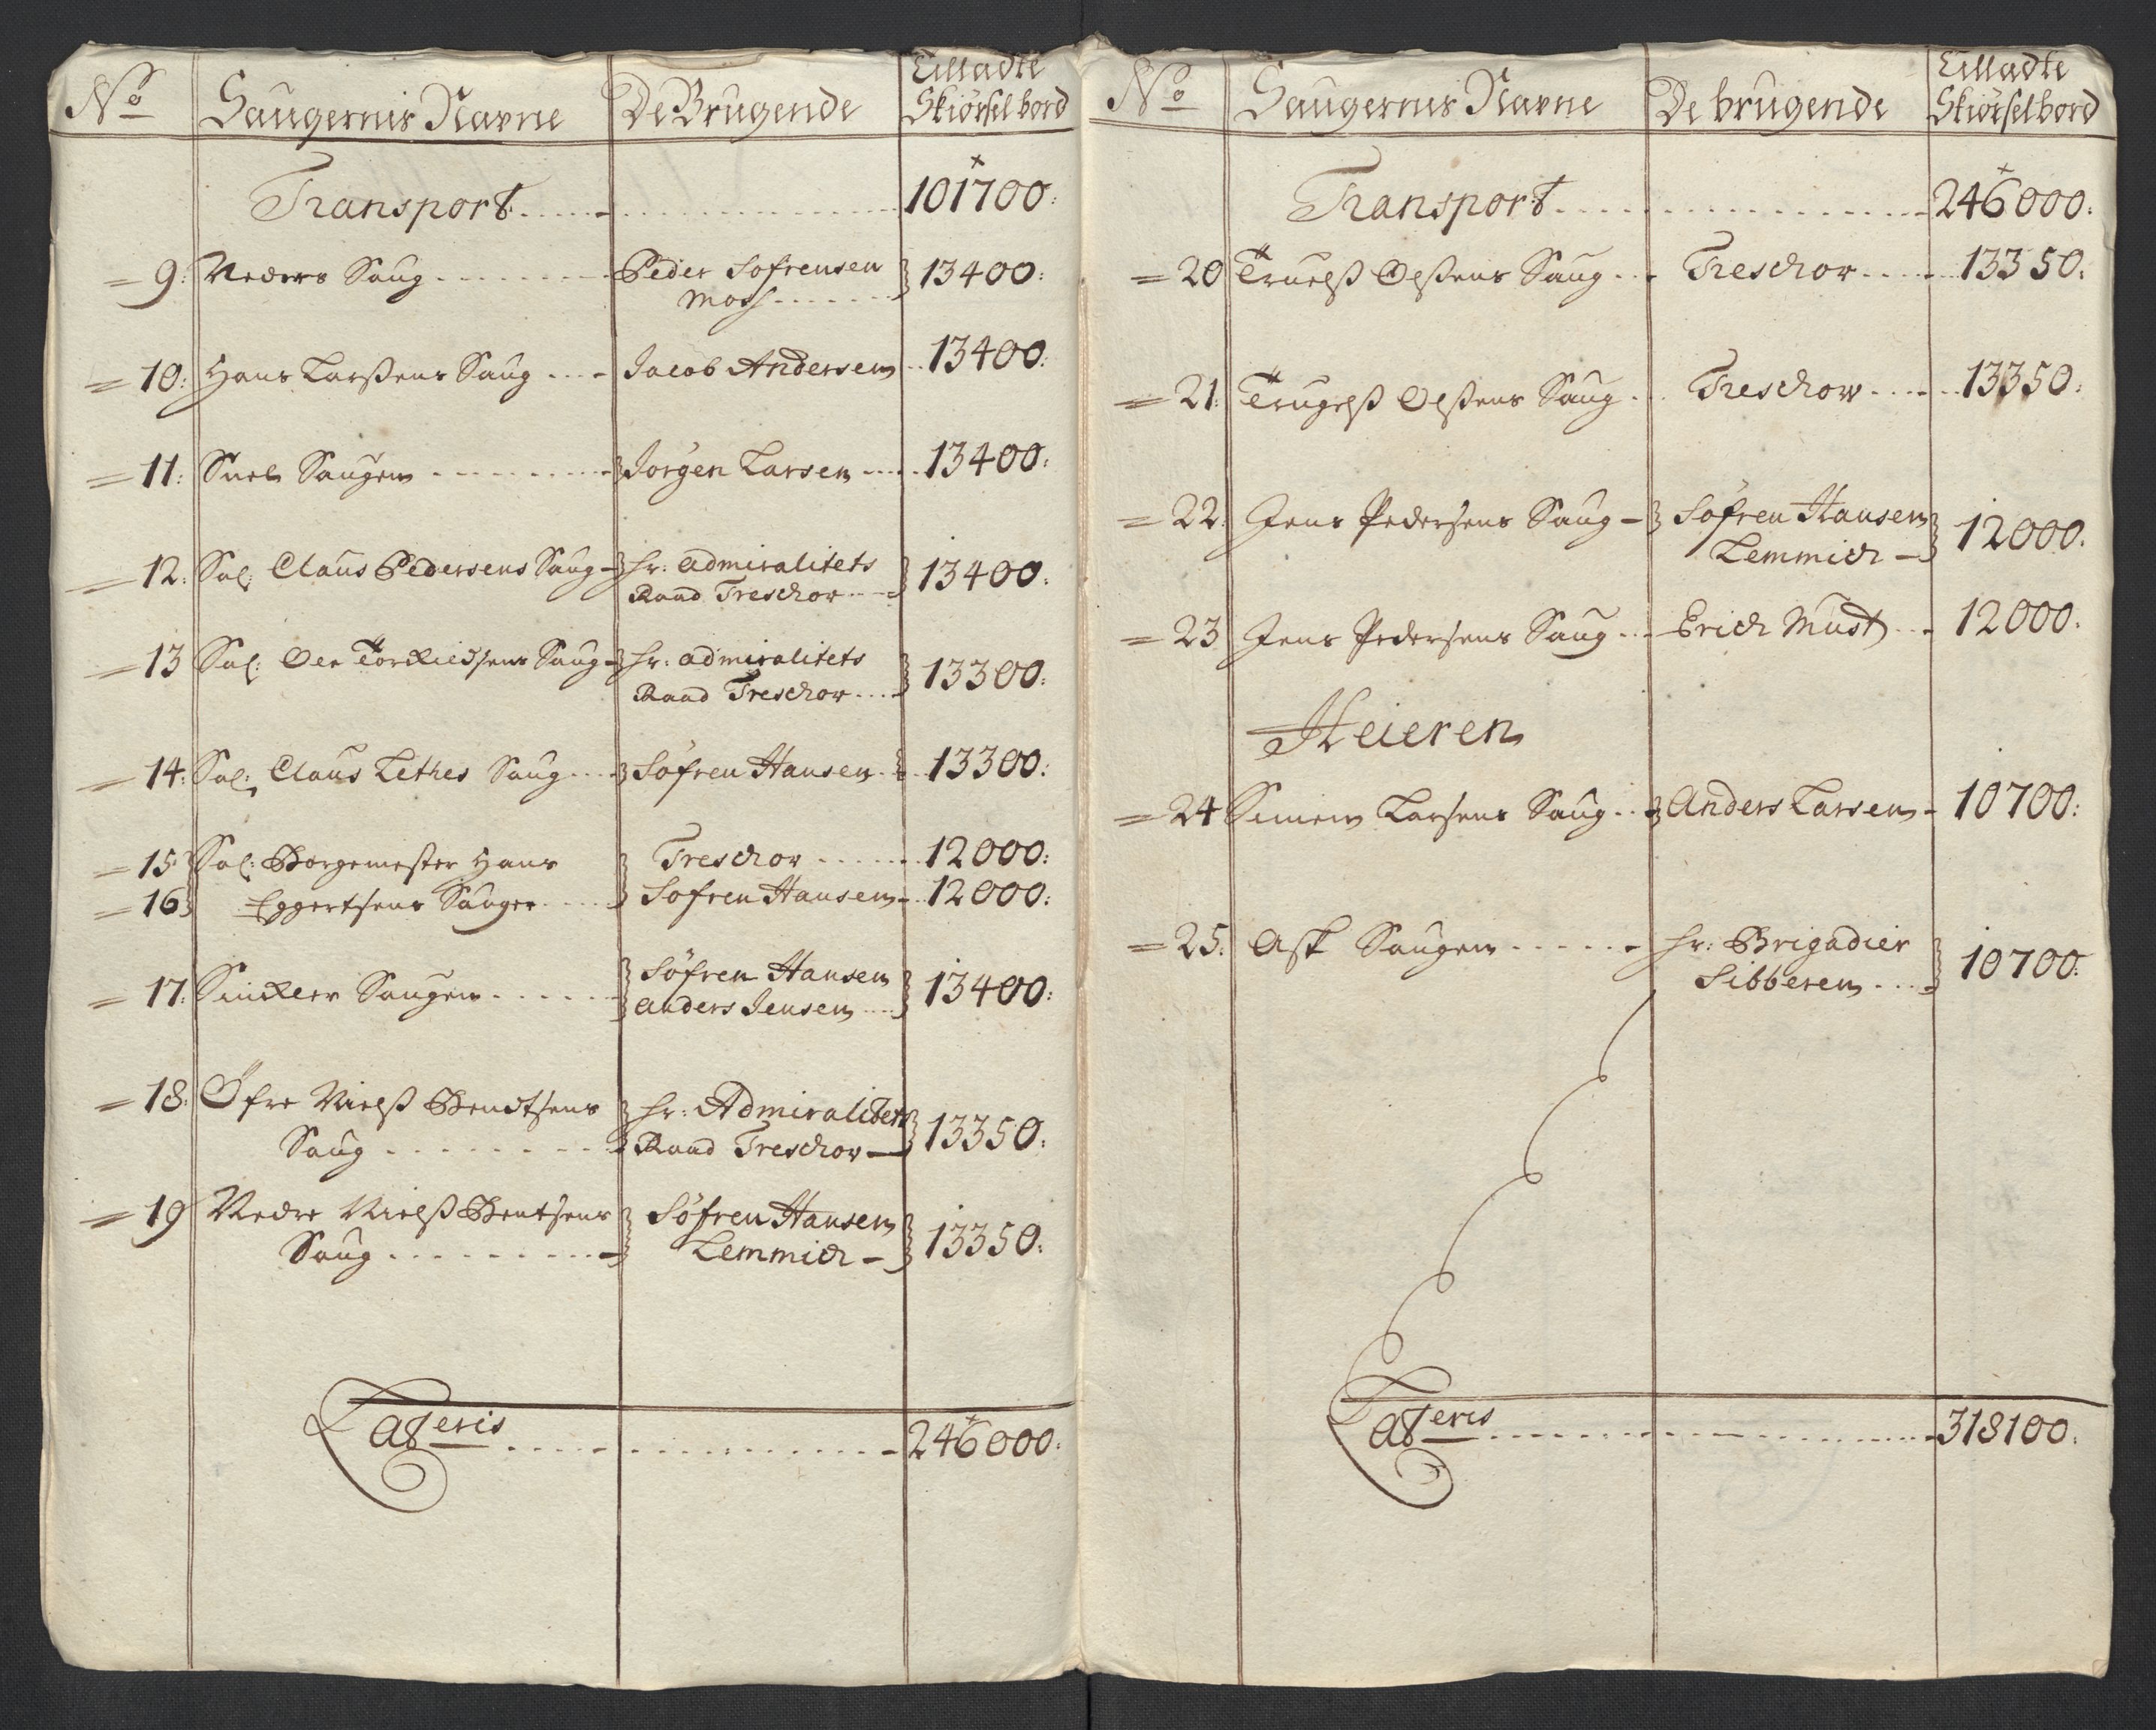 No Saugernis Navne De Brugende Tilladte
Skiørsel bord
Transport 101700:
9: Neders Saug Peder Sofrensen 13400:
Moss
10: Hans Larßens Saug Jacob Andersen 13400:
11: Saugen Jørgen Larsen 13400:
12: Sal: Claus Pedersens Saug hr: Admiralitets 13400:
Raad Treschow
13 Sal: Ole Torkildsens Saug hr: admiralitets 13300:
Raad Treschow
14: Sal: Claus Lethes Saug Søfren Hansen 13300:
15 Sal: Borgemester Hans Treschow 12000:
16 Eggertsens Sauger Sofren Hansen 12000:
17: Saugen Søfren Hansen 13400:
Anders Jensen
18: Øfre Nielß Bendtsens hr: Admiralitets 13350:
Saug Raad Treschow
19 Nedre Nielß Bentsens Søfren Hansen 13350:
Saug Lemmich
Lateris 246000:
No Saugernis Navne De brugende Tilladte
Skiørsel bord
Transport 246000:
20 Truelß Olßens Saug Treschow 13350:
21: Trugelß Olßens Saug Treschow 13350:
22: Jens Pedersens Saug Søfren Hansen 12000:
Lemmich
23 Jens Pedersens Saug Erich Must 12000:
Heieren
24 Simen Larsens Saug Anders Larsen 10700:
25: Ask Saugen hr: Brigadier 10700:
Sibbern
Lateris 318100: